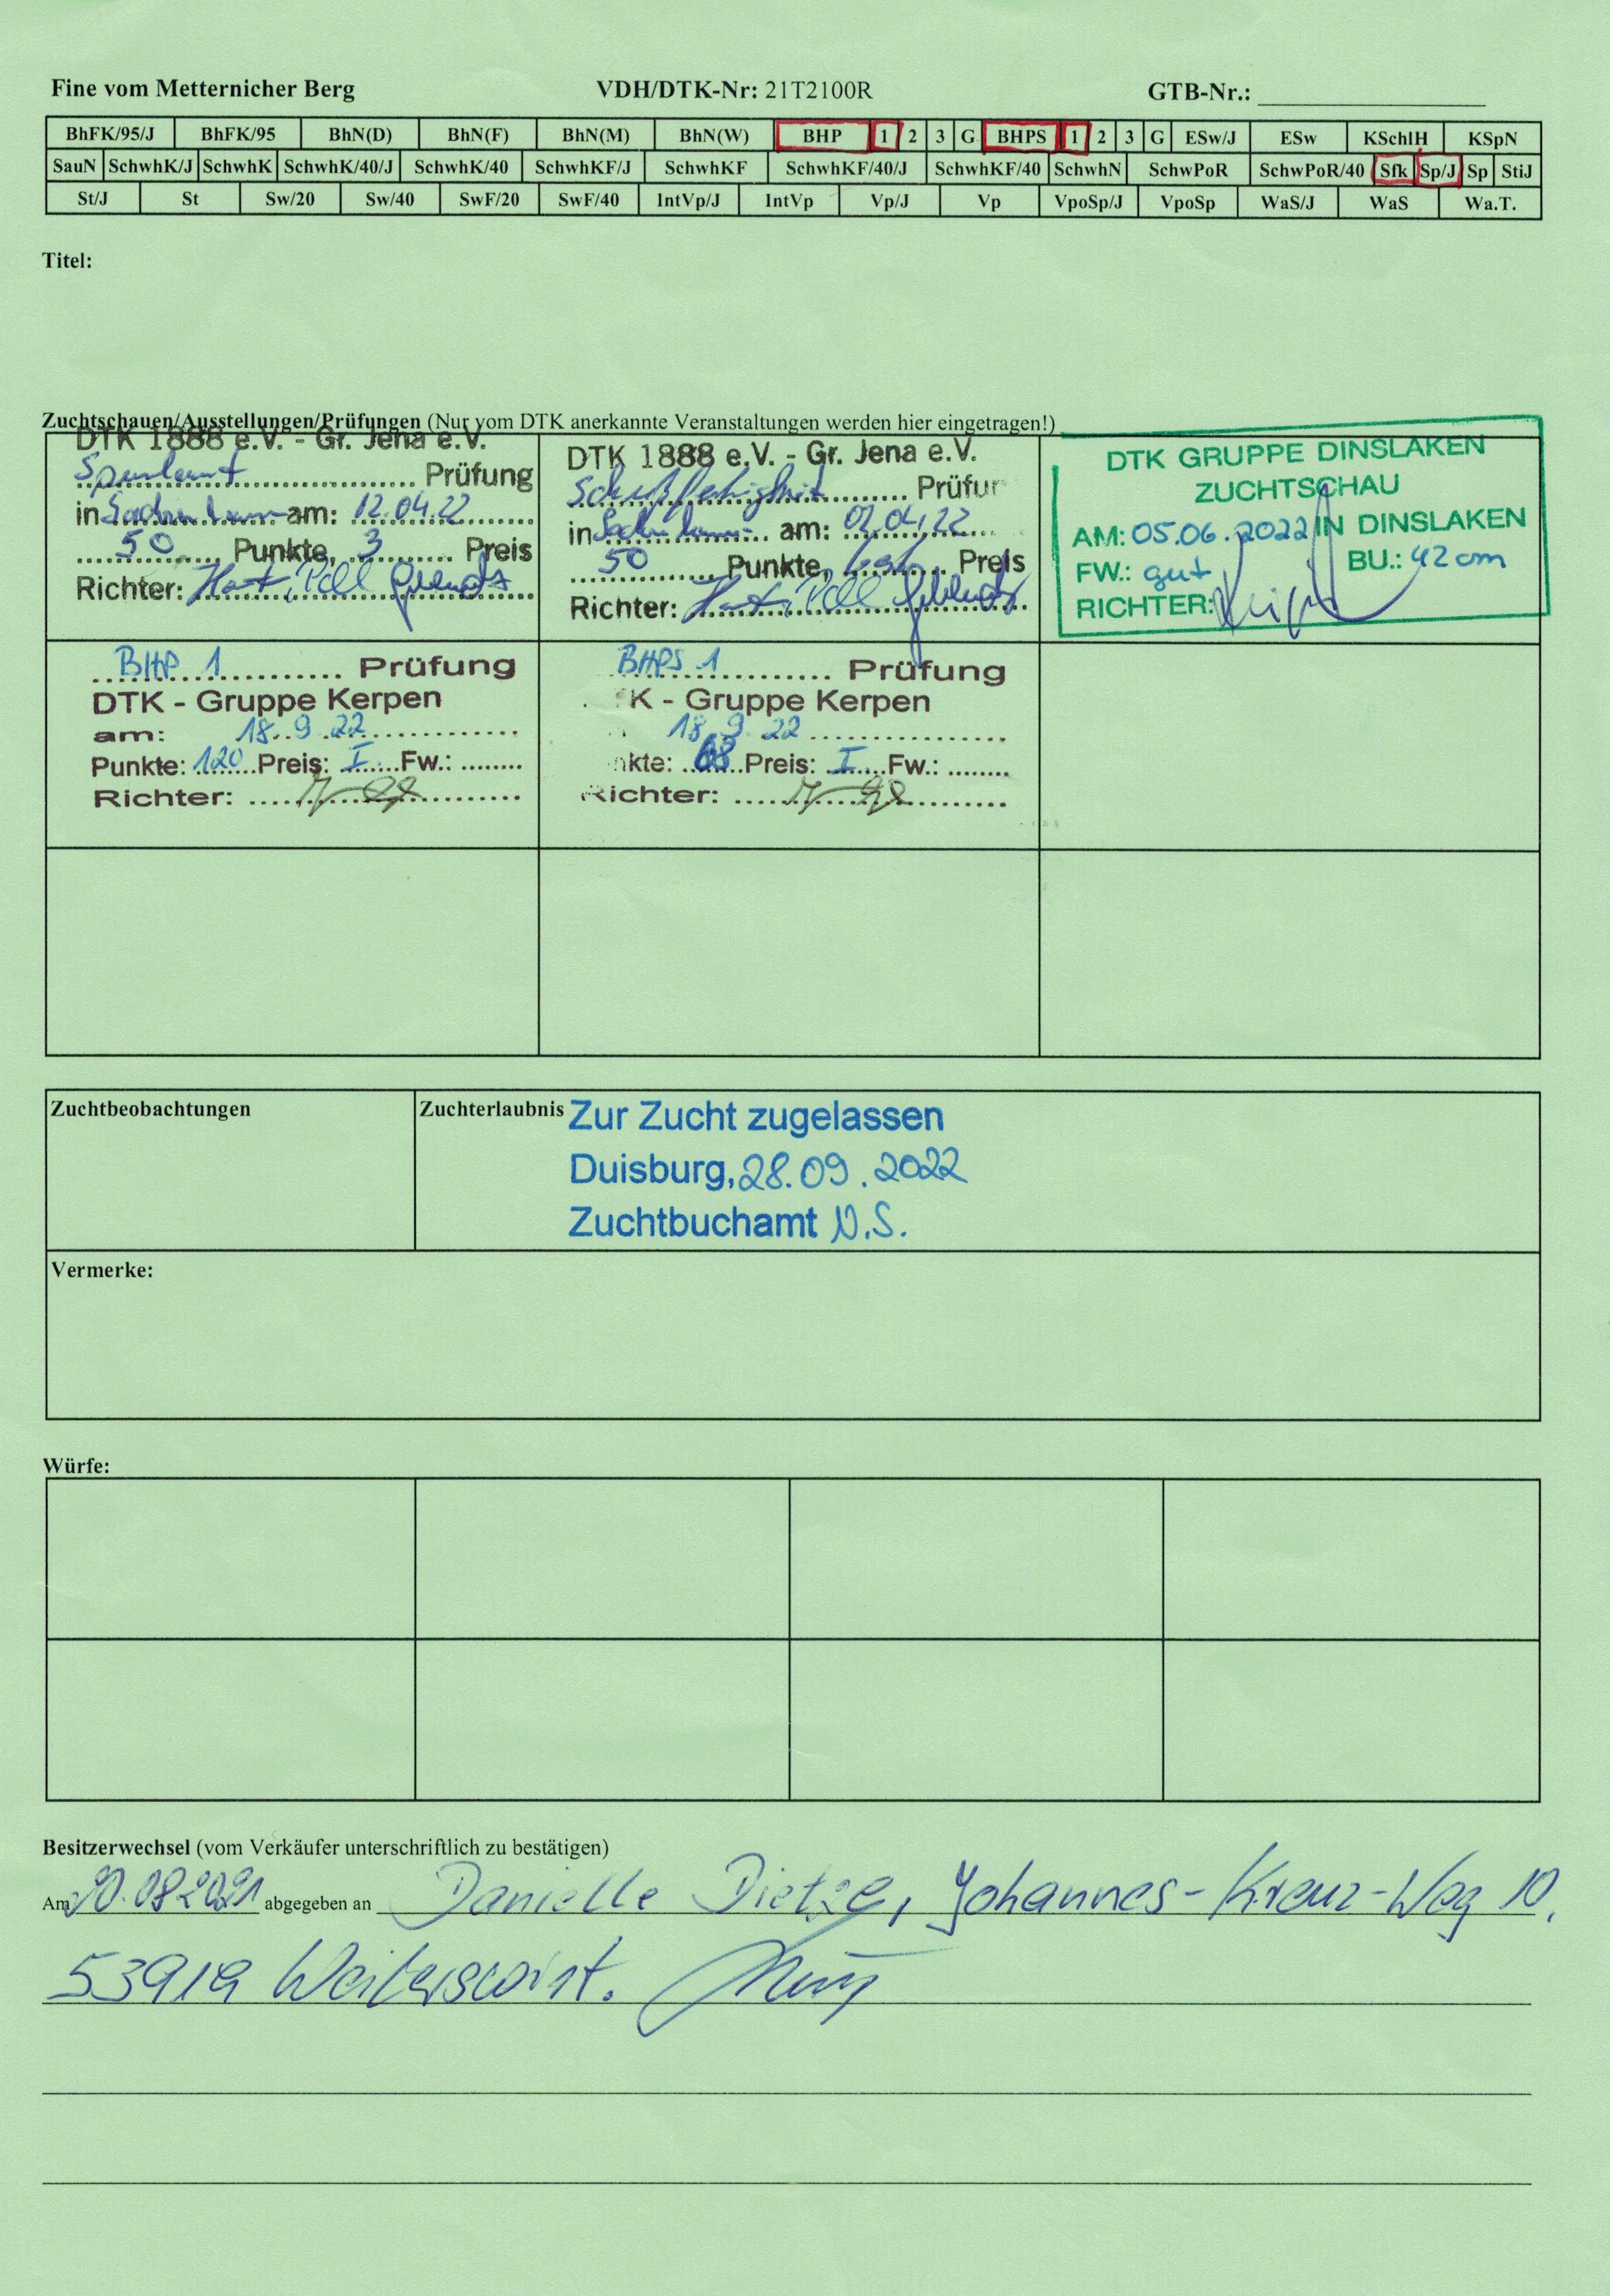 Fine vom Metternicher Berg VDH/DTK-Nr: 21T2100R GTB-Nr.:
BhFK/95/J BhFK/95 BhN(D) BhN(F) BhN(M) BhN(W) BHP 1 2 3 G BHPS 1 2 3 G ESw/J ESw KSchlH KSpN
SauN SchwhK/J SchwhK SchwhK/40/J SchwhK/40 SchwhKF/J SchwhKF SchwhKF/40/J SchwhKF/40 SchwhN SchwPoR SchwPoR/40 Sfk Sp/J Sp StiJ
St/J St Sw/20 Sw/40 SwF/20 SwF/40 IntVp/J IntVp Vp/J Vp VpoSp/J VpoSp WaS/J WaS Wa.T.
Titel:
Zuchtschauen/Ausstellungen/Prüfungen (Nur vom DTK anerkannte Veranstaltungen werden hier eingetragen!)
DTK 1888 e.V. - Gr. Jena e.V.
Spurlaut Prüfung
in am: 12.04.22
50 Punkte, 3 Preis
Richter:
DTK 1888 e.V. - Gr. Jena e.V.
Schußfestigkeit Prüfun
in am: 04.22
50 Punkte, Preis
Richter:
DTK GRUPPE DINSLAKEN
ZUCHTSCHAU
AM: 05.06.2022 IN DINSLAKEN
FW.: gut BU.: 42 cm
RICHTER:
BHP 1 Prüfung
DTK - Gruppe Kerpen
am: 18.9.22
Punkte: 120 Preis: I Fw.:
Richter:
BHPS 1 Prüfung
K - Gruppe Kerpen
18.9.22
nkte: 68 Preis: I Fw.:
Richter:
Zuchtbeobachtungen
Zuchterlaubnis Zur Zucht zugelassen
Duisburg, 28.09.2022
Zuchtbuchamt N.S.
Vermerke:
Würfe:
Besitzerwechsel (vom Verkäufer unterschriftlich zu bestätigen)
Am abgegeben an Danielle Dietze, Johannes-Kreuz-Weg 10,
53919 Weilerswist.